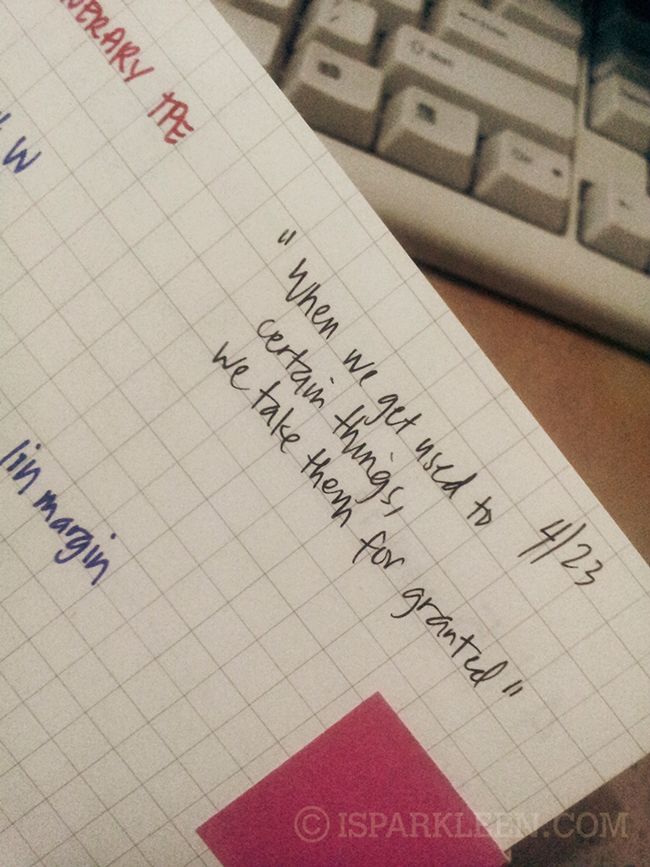 TPE
W
"When we get used to
certain things,
we take them for granted"
4/23
margin
© ISPARKLEEN.COM